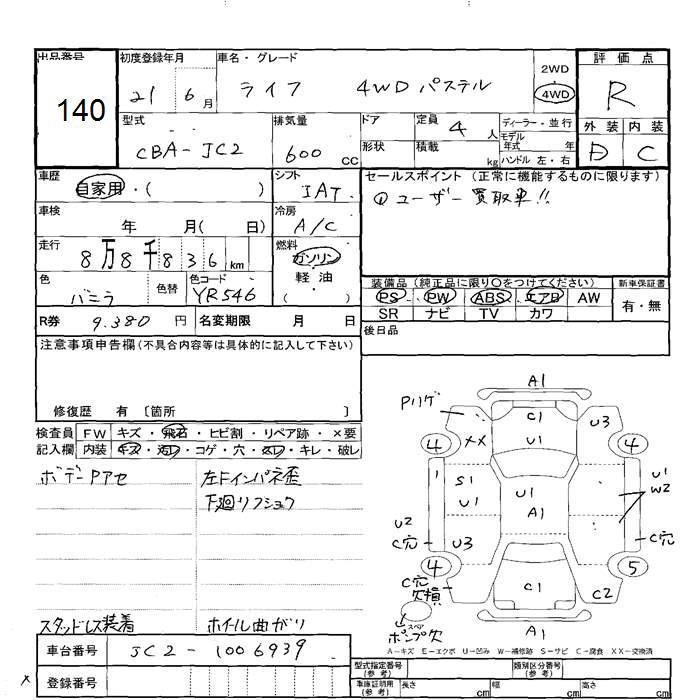 出品番号 初度登録年月 車名・グレード 評価点
140 21 6月 ライフ 4WD パステル 2WD 4WD R
型式 排気量 ドア 定員 4人 ディーラー・並行 外装 内装
CBA-JC2 600cc 形状 積載 kg モデル年式 年 ハンドル 左・右 D C
車歴 自家用・( ) シフト IAT セールスポイント (正常に機能するものに限ります)
車検 年 月( 日) 冷房 A/C ①ユーザー買取車!!
走行 8万8千836km 燃料 ガソリン 軽油 ( )
色 バニラ 色替 色コード YR546
装備品 (純正品に限り〇をつけてください) 新車保証書
PS PW ABS エアB AW 有・無
SR ナビ TV カワ
R券 9.380円 名変期限 月 日 後日品
注意事項申告欄(不具合内容等は具体的に記入して下さい)
修復歴 有 〔箇所 〕
検査員 FW キズ・飛石・ヒビ割・リペア跡・×要
記入欄 内装 キズ・汚レ・コゲ・穴・スレ・キレ・破レ
ボデーPアセ 左Fインパネ歪
下廻リフシュク
スタッドレス装着 ホイル曲がり
A1
Pリケ C1
XX U1 U3
4 4
1 S1 U1 U1 A1 U1 W2
U2 C穴 U3 C穴
4 5
C穴 欠損 C1 C2
スペア ポンプ欠 A1
A-キズ E-エクボ U-凹み W-補修跡 S-サビ C-腐食 XX-交換済
車台番号 JC2-1006939
× 登録番号
型式指定番号(参考) 類別区分番号(参考)
車庫証明用(参考) 長さ cm 幅 cm 高さ cm